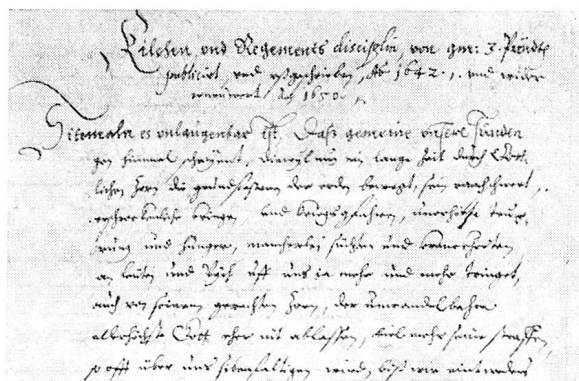 Kilchen und Regements disciplin, von gmr: 3. Pündten
publicirt, und ußgeschriben, Aº 1642., und wider
renoviert, Aº 1650.
Sitemaln es unlaugenbar ist. Daß gemeine unsere Sünden
gen himmel schreyent, dieweil nun ein lange Zeit durch Gött-
lichen Zorn die grundfesten der erden bewegt, sein rachschwert,
erschrockenliche kriege, und kriegsgfahren, unerhörte teur-
rung und hunger, mancherlei suchten und kranckheiten,
an leuten und Vych uff uns ia mehr und mehr tringet,
auch von seinem gerechten Zorn, der unwandelbahre
allerhöchste Gott eher nit ablassen, viel mehr seine straffen
so offt über uns sibenfaltigen wird, biß wir eintweders